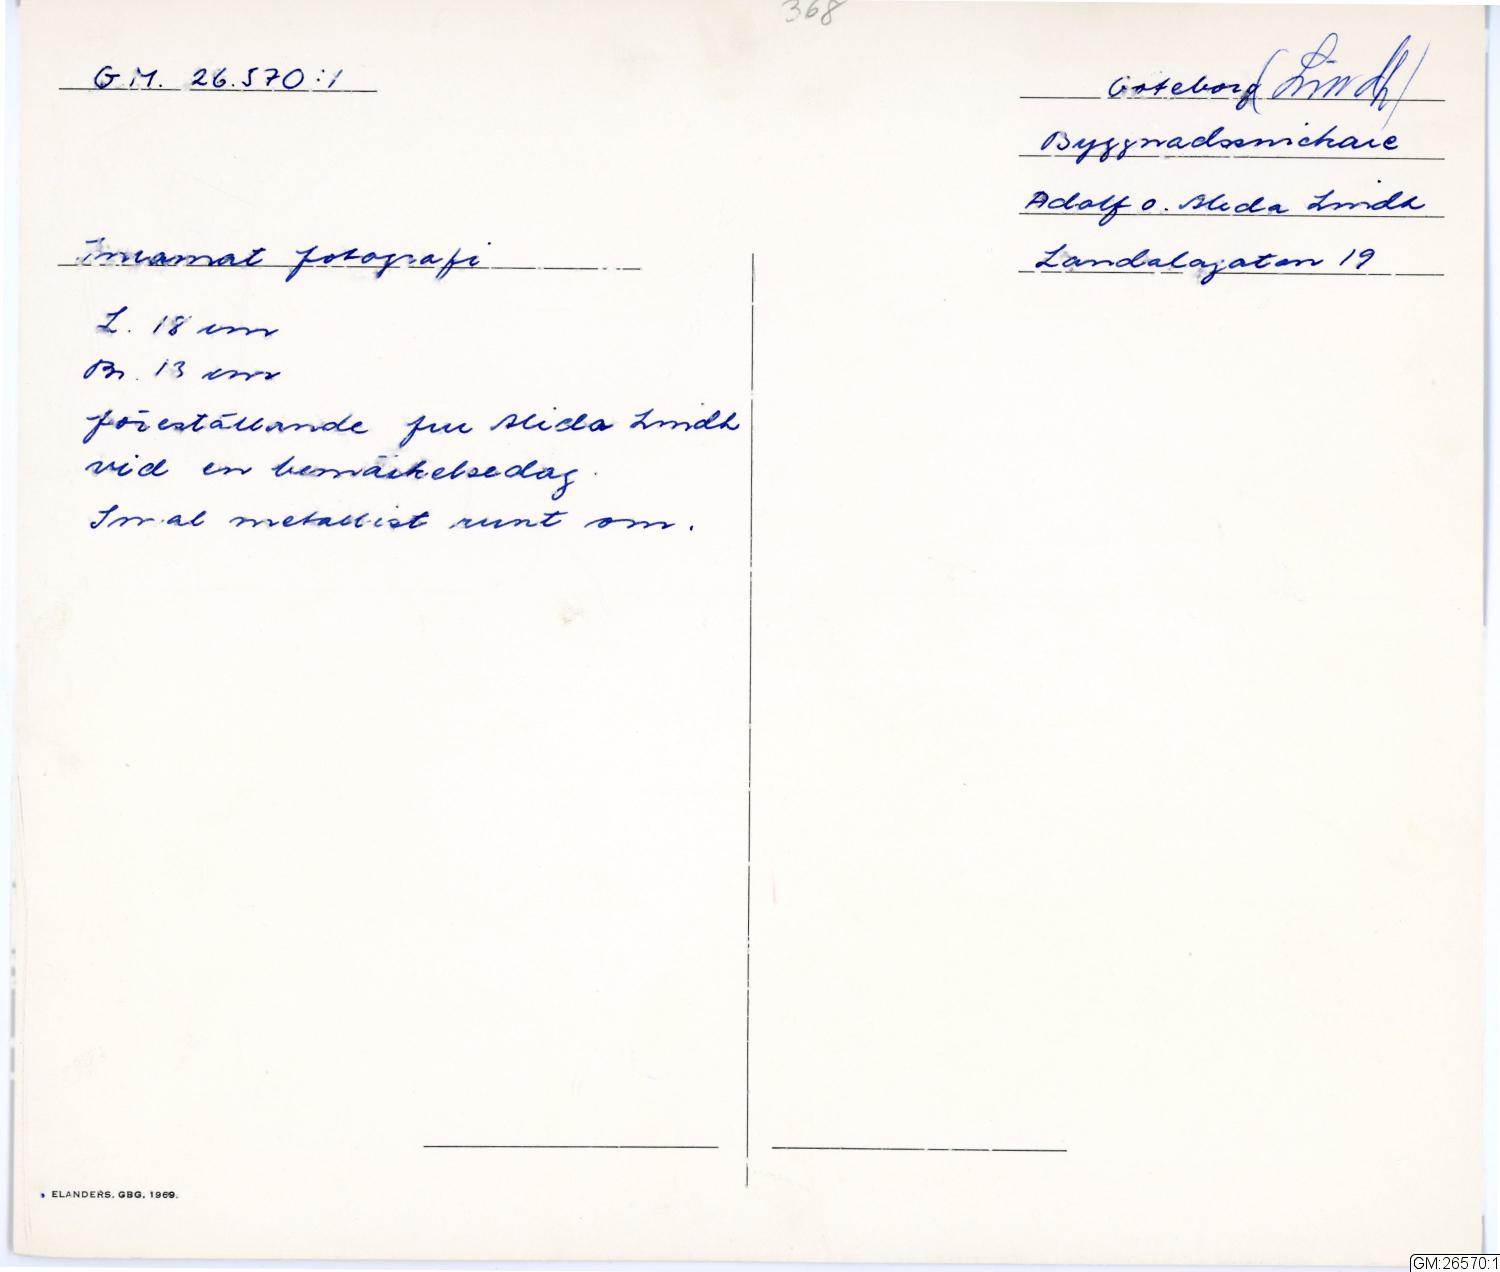 368
G.M. 26.570:1
Göteborg (Lindh)
Byggnadssnickare
Adolf o. Alida Lindh
Landalagatan 19
Inramat fotografi
L. 18 cm
Br. 13 cm
föreställande fru Alida Lindh
vid en bemärkelsedag.
Smal metallist runt om.
ELANDERS. GBG. 1969.
GM:26570:1